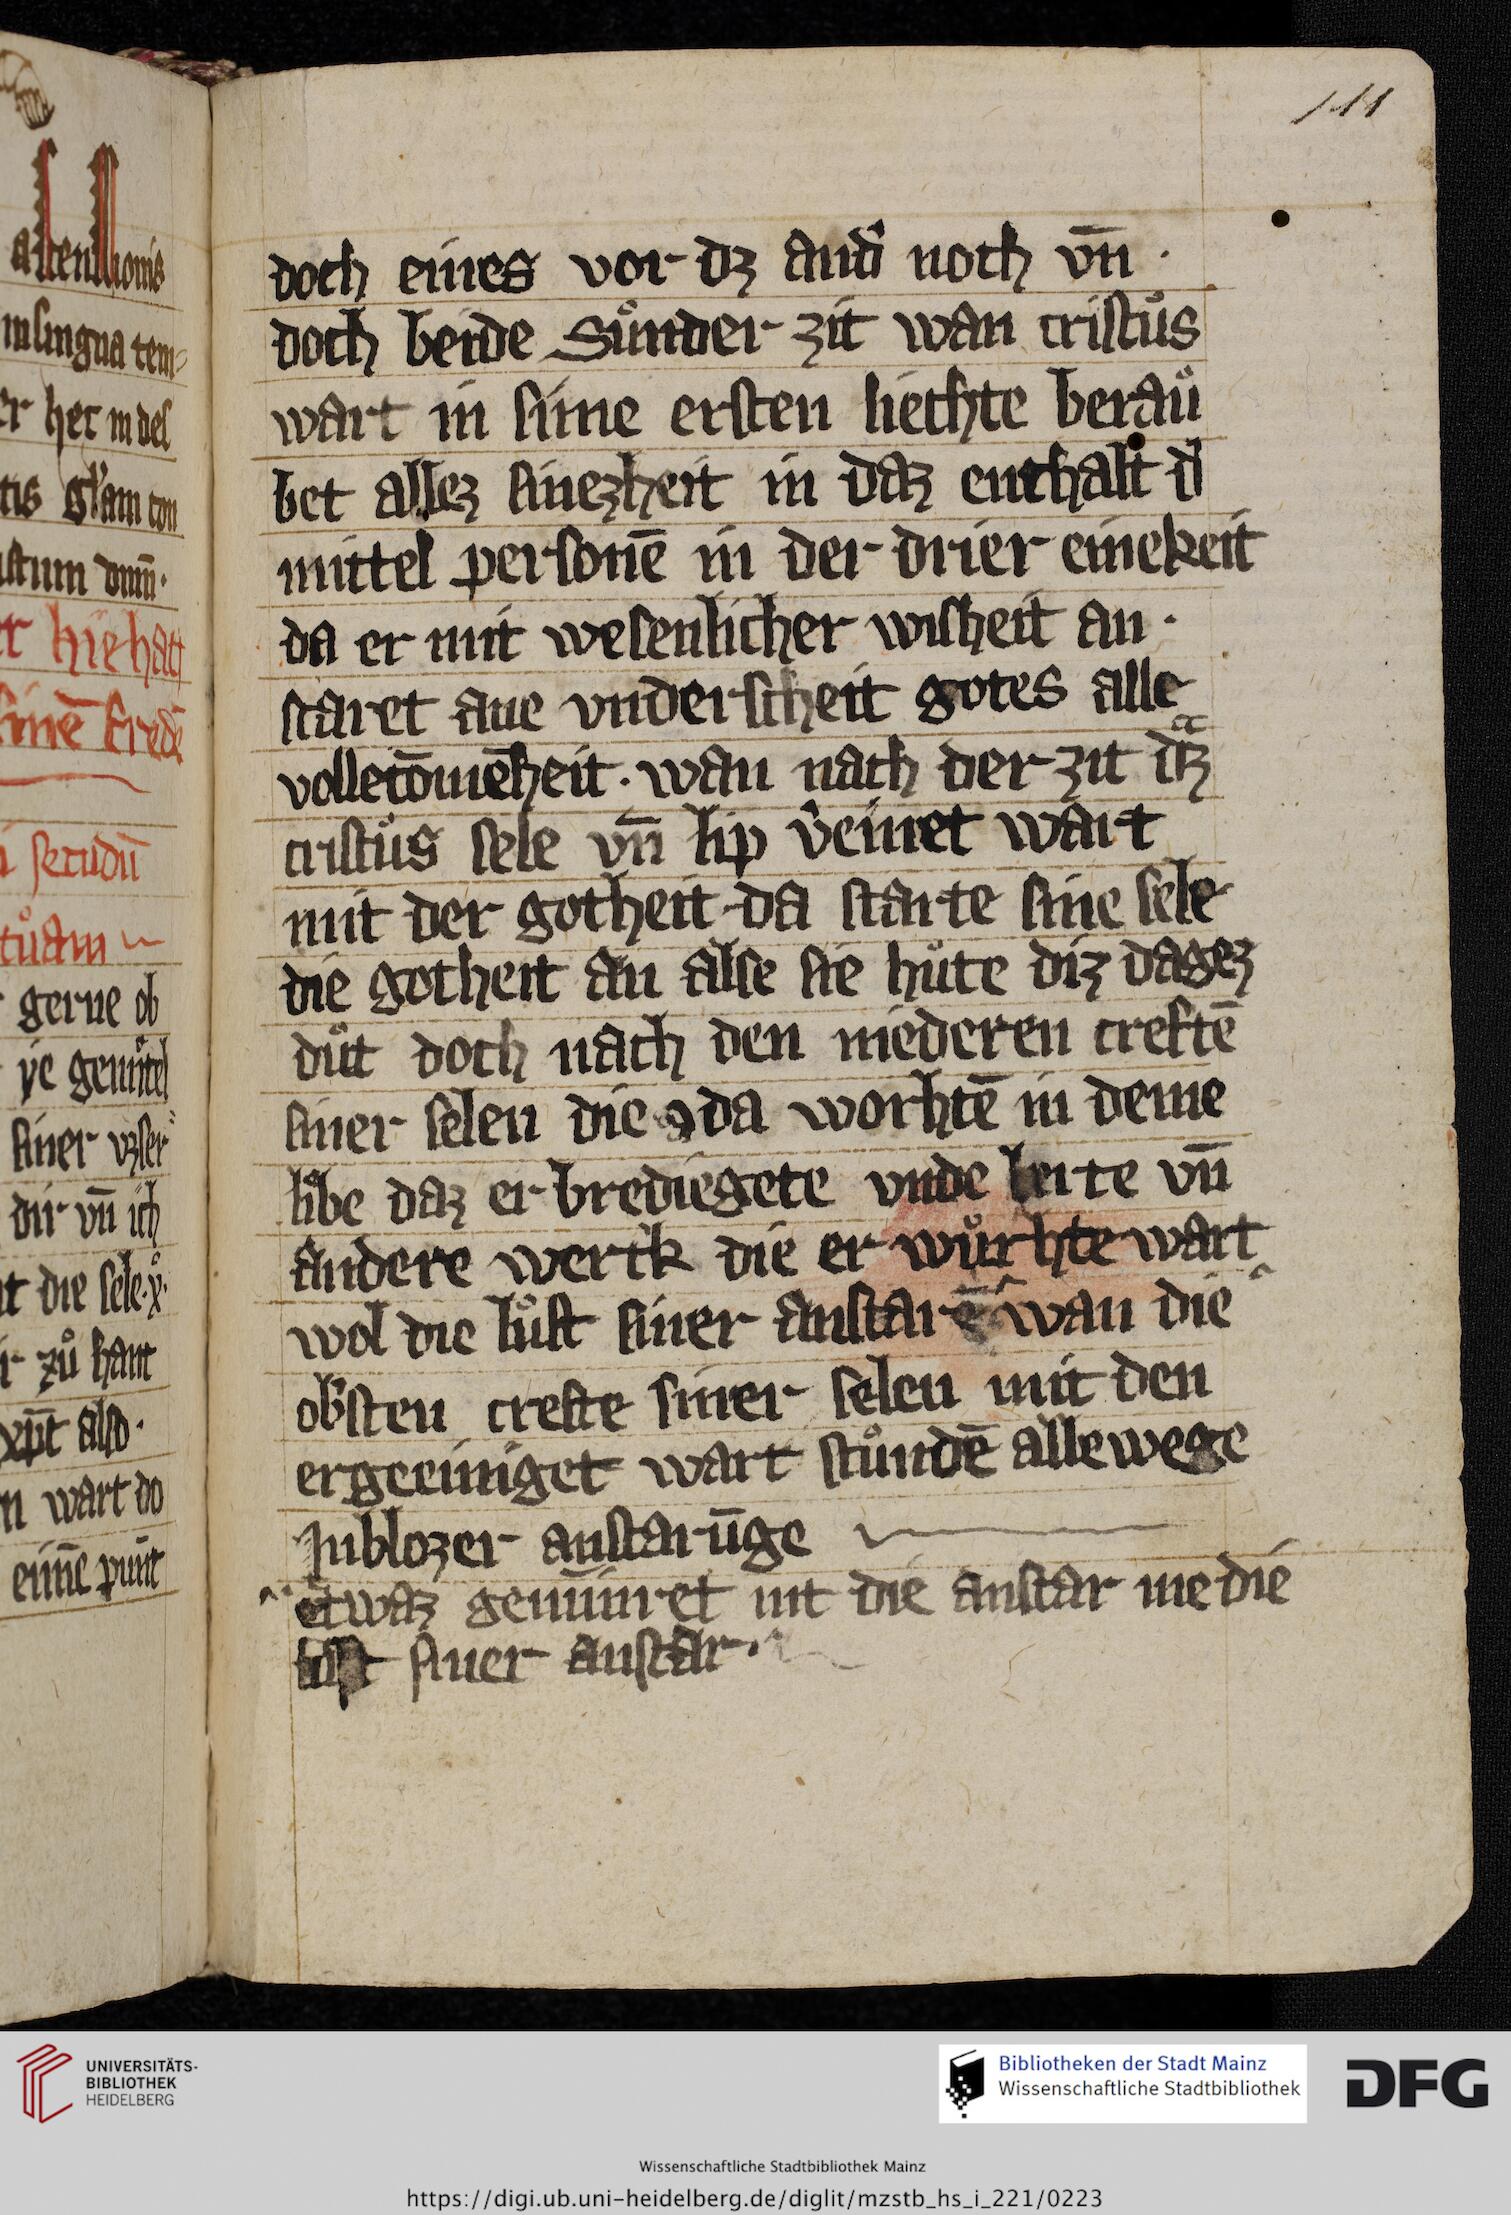 111
doch eines vor dz and̓ noch vn̄ ·
doch beide sůnder zit wan cristůs
wart in sime ersten liechte beraů
bet allez sinezheit in daz enthalt d̓
mittel personē in der drier einekeit
da er mit wesenlicher wisheit an ·
staret ane vnderscheit gotes alle
volleıōmēheit · wan nach der zit dz
cristůs sele vn̄ lip v̓einet wart
mit der gotheit da starte sine sele
die gotheit an alse sie hůte diz dagez
důt doch nach den niederen creftē
siner selen die da worhtē in deme
libe daz er brediegete vnde lerte vn̄
andere werck die er wůrhte wart
wol die lůst siner anstarē wan die
ob̓sten crefte siner selen mit den
ergeeiniget wart stůndē allewege
In blozer anstarūge
etwaz geminret nit die anstar me die
siner anstar ·
altenllionis
in lingua tem=
er het in des
tis gl̓am con
istum dnm̄ ·
hie hatt
sinē frede
secūdū
tůam
gerne ob
ye gemītel
siner vzser
dir vn̄ ich
die sele · x̊ ·
zů hant
xp̄t also ·
n wart do
eim̄e punt
UNIVERSITÄTS-
BIBLIOTHEK
HEIDELBERG
Bibliotheken der Stadt Mainz
Wissenschaftliche Stadtbibliothek
DFG
Wissenschaftliche Stadtbibliothek Mainz
https://digi.ub.uni-heidelberg.de/diglit/mzstb_hs_i_221/0223